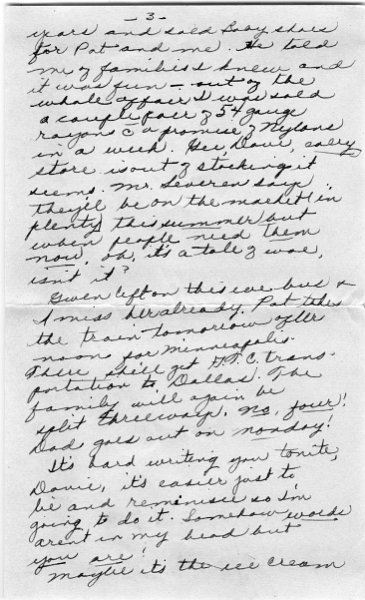 - 3 -
years and sold Baby shoes
for Pat and me. He told
me of families I knew and
it was fun - out of the
whole affair I was sold
a couple pair of 54 gauge
rayons c a promise of Nylons
in a week. Gee Davie, every
store is out of stocking it
seems. Mr. Severen says
they'll be on the market in
plenty this summer but
when people need them
now, oh, it's a tale of woe,
isn't it?
Gwen left on this eve. bus &
I miss her already. Pat takes
the train tomorrow after
noon for Minneapolis.
There she'll get A.T.C. trans-
portation to Dallas. The
family will again be
split threeways, no, four!!
Dad goes out on Monday!
It's hard writing you tonite,
Davie, it's easier just to
lie and reminisce so I'm
going to do it. Somehow words
aren't in my head but
you are!
Maybe it's the ice cream